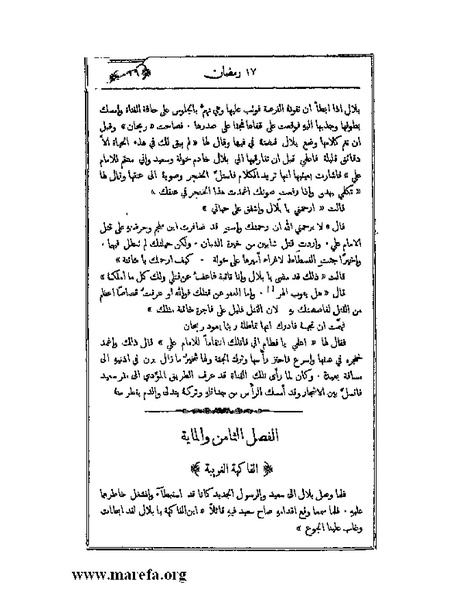 ١٧ رمضان
بلال اذا ابطأ ان تفوته الفرصة فوثب عليها وهي تهمّ بالجلوس على حافة القناة وامسك
بطوقها وجذبها اليه فوقعت على قفاها فجثا على صدرها . فصاحت « ريحان » وقبل
ان تتم كلامها وضع بلال قبضته في فيها وقال لها « لم يبق لك في هذه الحياة الاّ
دقائق قليلة فاعلمي قبل ان تفارقيها اني بلال خادم خولة وسعيد واني منتقم للامام
علي » فاشارت بعينيها انها تريد الكلام فاستلّ الخنجر وصوبهُ الى عنقها وقال لها
« تكلمي بهدوٍ واذا رفعت صوتك اغمدت هذا الخنجر في عنقك »
قالت « ارحمني يا بلال واشفق على حياتي »
قال « لا يرحمني الله ان رحمتك وانتِ قد ضافرت ابن ملجم وحرضتهِ على قتل
الامام علي . واردت قتل شابين من خيرة الشبان . ولكن حيلتك لم تنطلِ فيها .
واخيرًا جئت الفسطاط لاغراء اميرها على خولة - كيف ارحمك يا خائنة »
قالت « ذلك قد مضى يا بلال وانا تائبة فاعفُ عن قتلي ولك كل ما املكهُ »
قال « هل يتوب الهر . واما العفو عن قتلك فوالله لو عرفتُ قصاصًا اعظم
من القتل لقاصصتك بهِ لان القتل قليل على فاجرة خائنة مثلك »
فهمّت ان تجيبهُ فادرك انها تماطلهُ ريثما يعود ريحان
فقال لها « اعلمي يا قطام اني قاتلك انتقامًا للامام علي » قال ذلك واغمد
خنجره في عنقها واسرع فاحتز رأسها وترك الجثة ولها شخير ما زال يرن في اذنيهِ الى
مسافة بعيدة . وكان لما رأى تلك القناة قد عرف الطريق المؤدي الى مقر سعيد
فانسلّ بين الاشجار وقد امسك الرأس من جدائلهِ وتركهُ يتدلى والدم يقطر منهُ
الفصل الثامن والماية
﴿ الفاكهة الغريبة ﴾
فلما وصل بلال الى سعيد والرسول الجديد كانا قد استبطآهُ وانشغل خاطرهما
عليهِ . فلما سمعا وقع اقدامهِ صاح سعيد فيهِ قائلاً « اين الفاكهة يا بلال لقد ابطأت
وغلب علينا الجوع »
www.marefa.org